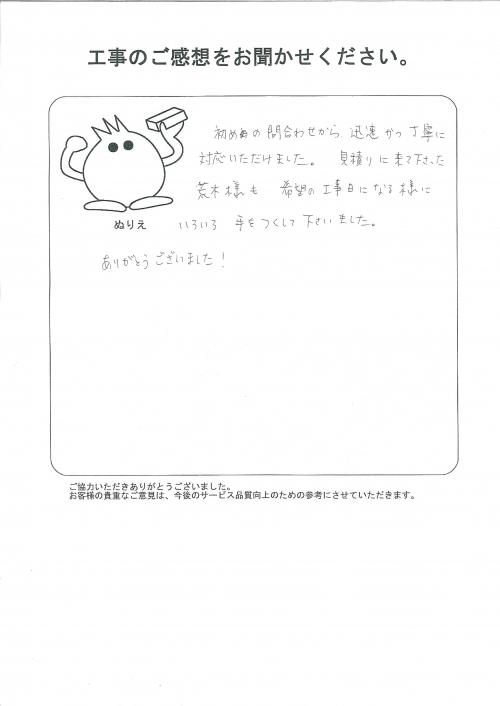 工事のご感想をお聞かせください。
初めの問合わせから 迅速かつ丁寧に
対応いただけました。 見積りに来て下さった
荒木様も 希望の工事日になる様に
ぬりえ
いろいろ 手をつくして下さいました。
ありがとうございました！
ご協力いただきありがとうございました。
お客様の貴重なご意見は、今後のサービス品質向上のための参考にさせていただきます。